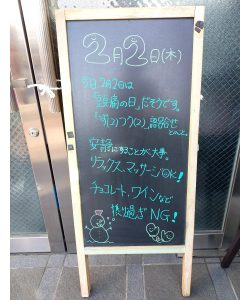 2月2日(木)
今日2月2日は
「頭痛の日」だそうです。
「ず(2)つう(2)」語呂合せ
とのこと。
安静にすることが大事。
リラックス、マッサージOK!
チョコレート、ワインなど
摂り過ぎNG!